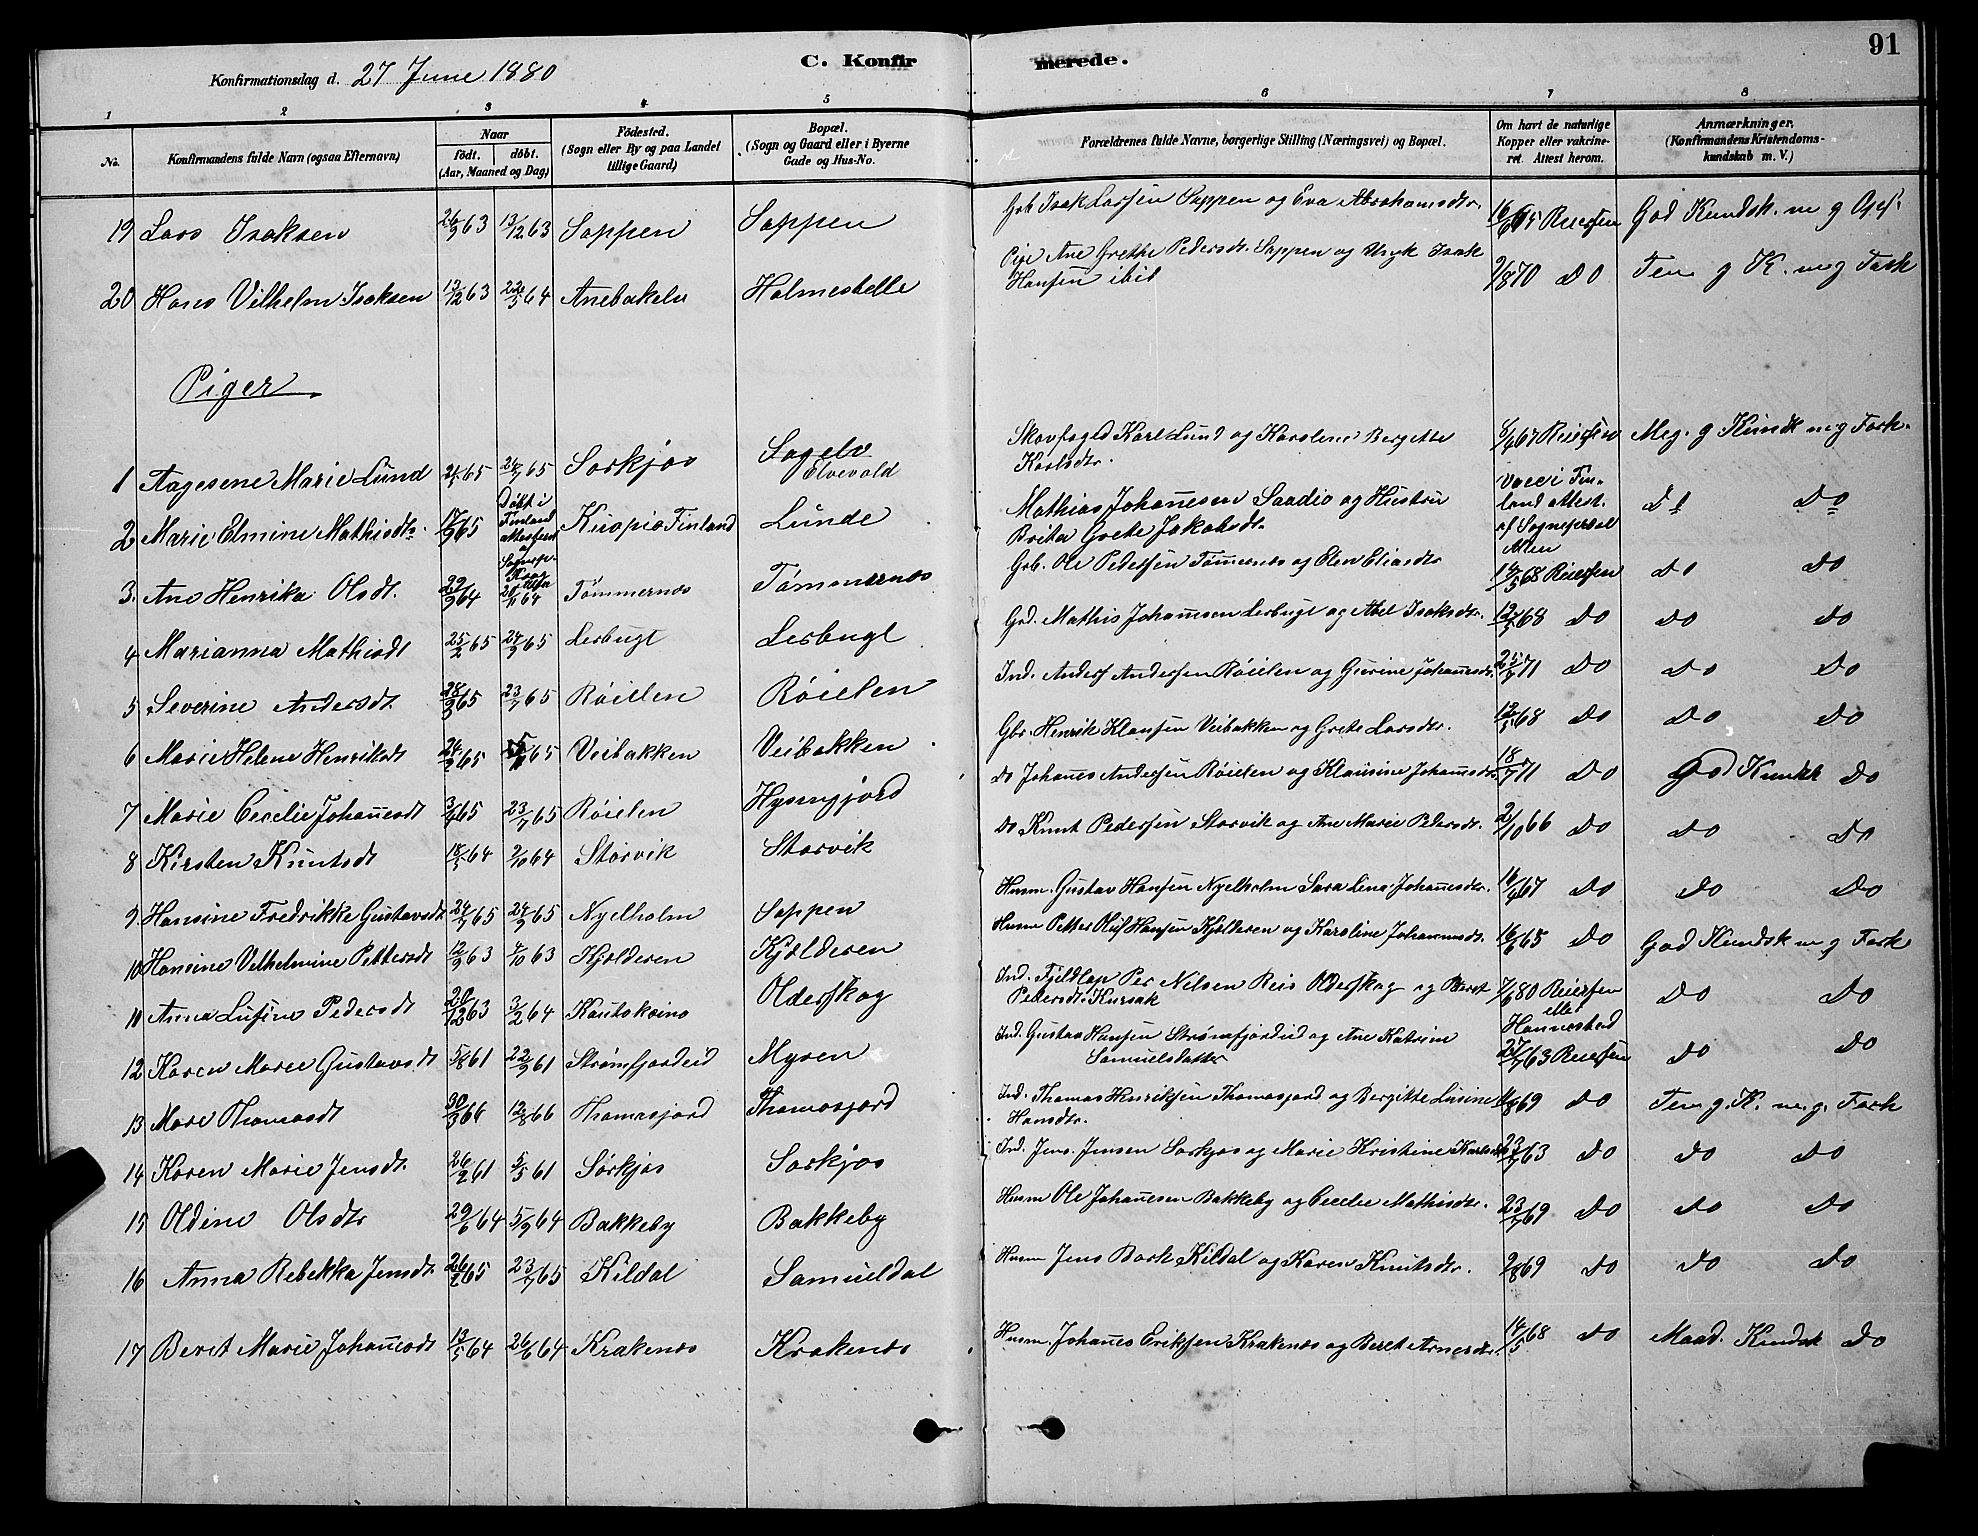 91
C. Konfirmerede.
Konfirmationsdag d. 27 June 1880
1 2 3 4 5 6 7 8
No. Konfirmandens fulde Navn (ogsaa Efternavn) Naar født. døbt. (Aar, Maaned og Dag) Fødested. (Sogn eller By og paa Landet tillige Gaard) Bopæl. (Sogn og Gaard eller i Byerne Gade og Hus-No. Forældrenes fulde Navne, borgerlige Stilling (Næringsvei) og Bopæl. Om havt de naturlige Kopper eller vakcineret. Attest herom. Anmærkninger. (Konfirmandens Kristendomskundskab m. V.)
19 Lars Isaksen 26/9 63 13/12 63 Sappen Sappen Grb Isak Larsen Sappen og Eva Abrahamsdtr. Reiersen God Kundsk. m g
20 Hans Vilhelm Isaksen 13/12 63 22/5 64 Holmestelle Pige Ane Grethe Pedersdt. Sappen og Isak Hansen ibid 9/8 70 do Tem g K. m g Forh
Piger
1 Aagesene Marie Lund 24/7 65 Sorkjos Sagelv Elvevold Skovfoged Karl Lund og Karoline Bergette Karlsdtr. 8/6 67 Reiersen Meg. g Kundk m g Forh.
2 Marie Elmine Mathisdt. 17/9 65 Døbt i Finland Finland Lunde Mathias Johannesen Saadio og Hustru Brita Grete Jakobsdt. vacci Finland attest. af do
3. Ane Henrika Olsdt. 22/9 64 20/11 64 Tømmernes Tømmernes Grb. Ole Pedersen Tømmernes og Elen Eliasdtr 14/5 68 Reiersen do do
4 Marianna Mathisdt 25/2 65 24/9 65 Lerbugt Lerbugt Grd. Mathis Johannsen Lerbugt og Abel Isaksdtr. 12/5 68 do do do
5 Severine Andersdt 23/7 65 Røielen Røielen Ind. Anders Andersen Røielen og Gurine Johannesdt. 25/7 71 do do do
6 Marie Helene Henriksdt 24/2 65 Veibakken Veibakken Gbr. Henrik Klausen Veibakken og Grete Larsdtr. 12/5 68 do do do
7 Marie Cecelie Johannesdt 3/6 65 23/7 65 Røielen do Johannes Andersen Røielen og Klausine Johannesdtr 18/7 71 do God Kundsk do
8 Kirsten Knutsdt 18/5 64 2/10 64 Storvik Storvik do Knut Pedersen Storvik og Ane Marie Pedersdt. 2/10 66 do do do
9. Hansine Fredrikke Gustavsdt 24/7 65 24/9 65 Nyelholm Sappen Husm. Gustav Hansen Nyelholm Sara Lina Johannesdtr. 16/6 67 do do do
10 Hansine Vilhelmine Pettersdt 12/9 63 4/10 63 Kjolderen Kjolderen Husm Petter Oluf Hansen Kjolderen og Karoline Johannesdt. 16/6 65 do God Kundsk m g Forh
11 Anna Lusine Pedersdt 20/12 63 3/2 64 Kautokeino Olderskog Ind. Fjeldlap Per Nilsen Reis Olderskog og Beret Pedersdt. Kursak 7/6 80 Reiersen eller Hannestad do do
12 Karen Marie Gustavsdt 5/8 61 22/9 61 Strømfjordeid Myren Ind. Gustav Hansen Strømfjordeid og Ane Katrine Samuelsdatter 27/7 63 Reiersen do do
13 Mare Thomasdt 30/3 66 12/8 66 Thomasjord Thomasjord Ind. Thomas Henriksen Thomasjord og Bergitte Lusine Hansdtr. 69 do Tem g. K. m. g. Forh
14 Karen Marie Jensdt. 26/2 61 5/5 61 Sørkjos Sorkjos Ind. Jens Jensen Sorkjos og Marie Kristine Karlsdt 23/7 63 do do do
15 Oldine Olsdtr 29/6 64 5/9 64 Bakkeby Bakkeby Husm Ole Johannesen Bakkeby og Cecelie Mathisdtr. 23/7 69 do do do
16 Anna Rebekka Jensdt. 26/2 65 23/7 65 Kildal Samueldal Husm Jens Bark Kildal og Karen Knutsdtr. 2/8 69 do do do
17 Beret Marie Johannesdt 13/5 64 26/6 64 Krakenes Krakenes Husm. Johannes Eriksen Krakenes og Beret Arnesdtr. 14/5 68 do Maad. Kundsk do
Piger